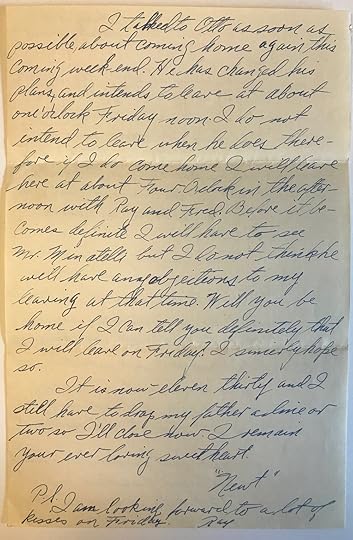 I talked to Otto as soon as
possible about coming home again this
coming week end. He has changed his
plans, and intends to leave at about
one o'clock Friday noon. I do not
intend to leave when he does there-
fore if I do come home I will leave
here at about Four O'clock in the after-
noon with Ray and Fred. Before it be-
comes definite I will have to see
Mr. but I do not think he
will have any objections to my
leaving at that time. Will you be
home if I can tell you definitely that
I will leave on Friday? I sincerely hope
so.
It is now eleven thirty and I
still have to drop my father a line or
two so I'll close now. I remain
your ever loving sweetheart.
"Newt"
P.S.
I am looking forward to a lot of
kisses on Friday. Ray